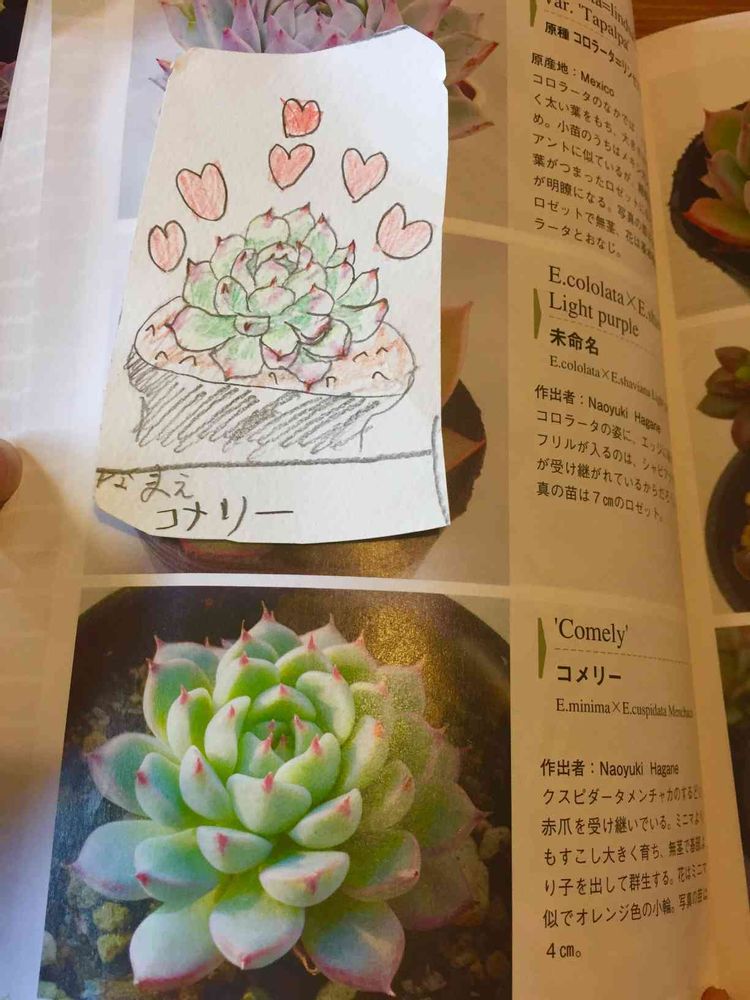 なまえ
コナリー
Var. 'Tapalpa'
原産地：Mexico
コロラータのなかでは
く太い葉をもち、大き
め。小苗のうちはメキシ
アントに似ているが、
葉がつまったロゼット
が明瞭になる。写真の
ロゼットで無茎。花は
ラータとおなじ。
E.cololata×E.sha
Light purple
未命名
E.cololata×E.shaviana
作出者：Naoyuki Hagane
コロラータの姿に、エッジに
フリルが入るのは、シャビア
が受け継がれているからだろ
真の苗は7㎝のロゼット。
'Comely'
コメリー
E.minima×E.cuspidata Menchaca
作出者：Naoyuki Hagane
クスピダータメンチャカのするど
赤爪を受け継いでいる。ミニマよ
もすこし大きく育ち、無茎で基部よ
り子を出して群生する。花はミニマ
似でオレンジ色の小輪。写真の苗は
4㎝。